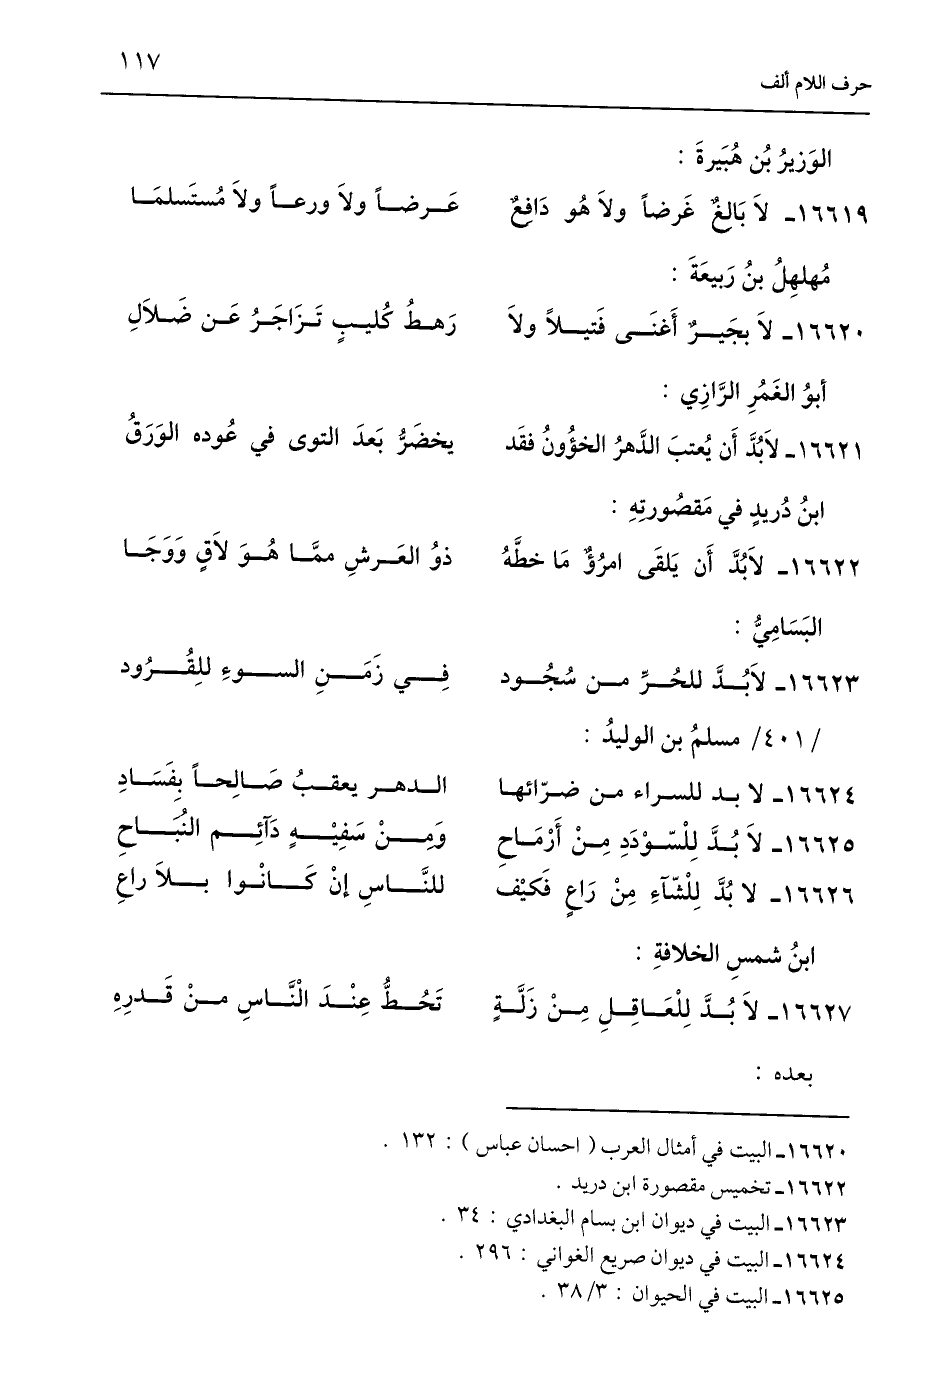 ١١٧
حرف اللام ألف
الوَزيرُ بُن هُبَيرةَ :
١٦٦١٩ـ لاَ بَالِغٌ غَرضاً ولاَ هُو دَافِعٌ عَـرضـاً ولاَ ورعـاً ولاَ مُستَسلمَـا
مُهلهِلُ بنُ رَبيعَةَ :
١٦٦٢٠ـ لاَ بجَيـرٌ أَغنَـى فَتيـلاً ولاَ رَهـطُ كُليـبٍ تَـزَاجَـرُ عَـن ضَـلاَلِ
أبوُ الغَمُرِ الرَّازِي :
١٦٦٢١ـ لاَبُدَّ أَن يُعتبَ الدَّهرُ الخؤُونُ فقَد يخضَرُّ بَعدَ التوى في عُوده الوَرَقُ
ابنُ دُريدٍ في مَقصُورتِهِ :
١٦٦٢٢ـ لاَبُدَّ أَن يَلقَى امرُؤٌ مَا خطَّهُ ذوُ العَـرشِ ممَّـا هُـوَ لاَقٍ وَوَجَـا
البَسَامِيُّ :
١٦٦٢٣ـ لاَبُـدَّ للحُـرِّ مـن سُجُـود فِـي زَمَـنِ السـوءِ للِقُـرُود
/٤٠١/ مسلمُ بن الوليدُ :
١٦٦٢٤ـ لا بـد للسراء مـن ضـرّائهـا الـدهـر يعقـبُ صَـالِحـاً بِفَسَـادِ
١٦٦٢٥ـ لاَ بُـدَّ لِلْسّـوْدَدِ مِـنْ أَرْمَـاحِ وَمِـنْ سَفِيْـهٍ دَآئِـم النُبَـاحِ
١٦٦٢٦ـ لا بُدَّ لِلْشّآءِ مِنْ رَاعٍ فَكيْف للنَّـاسِ إنْ كَـانْـوا بـلاَ راعِ
ابنُ شمسِ الخلافةِ :
١٦٦٢٧ـ لاَ بُـدَّ لِلْعَـاقِـلِ مِـنْ زَلَّـةٍ تَحُـطُّ عِنْـدَ الْنَّـاسِ مـنْ قَـدرِهِ
بعده :
١٦٦٢٠ـ البيت في أمثال العرب ( احسان عباس ) : ١٣٢ .
١٦٦٢٢ـ تخميس مقصورة ابن دريد .
١٦٦٢٣ـ البيت في ديوان ابن بسام البغدادي : ٣٤ .
١٦٦٢٤ـ البيت في ديوان صريع الغواني : ٢٩٦ .
١٦٦٢٥ـ البيت في الحيوان : ٣٨/٣ .